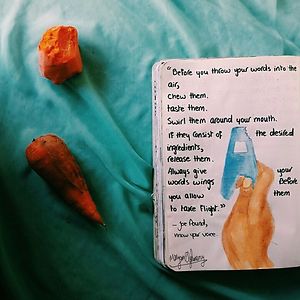 "Before you throw your words into the
air,
chew them.
taste them.
Swirl them around your mouth.
If they consist of the desired
ingredients,
release them.
Always give your
words wings Before
you allow them
to take flight."
- joe found,
know your voice.